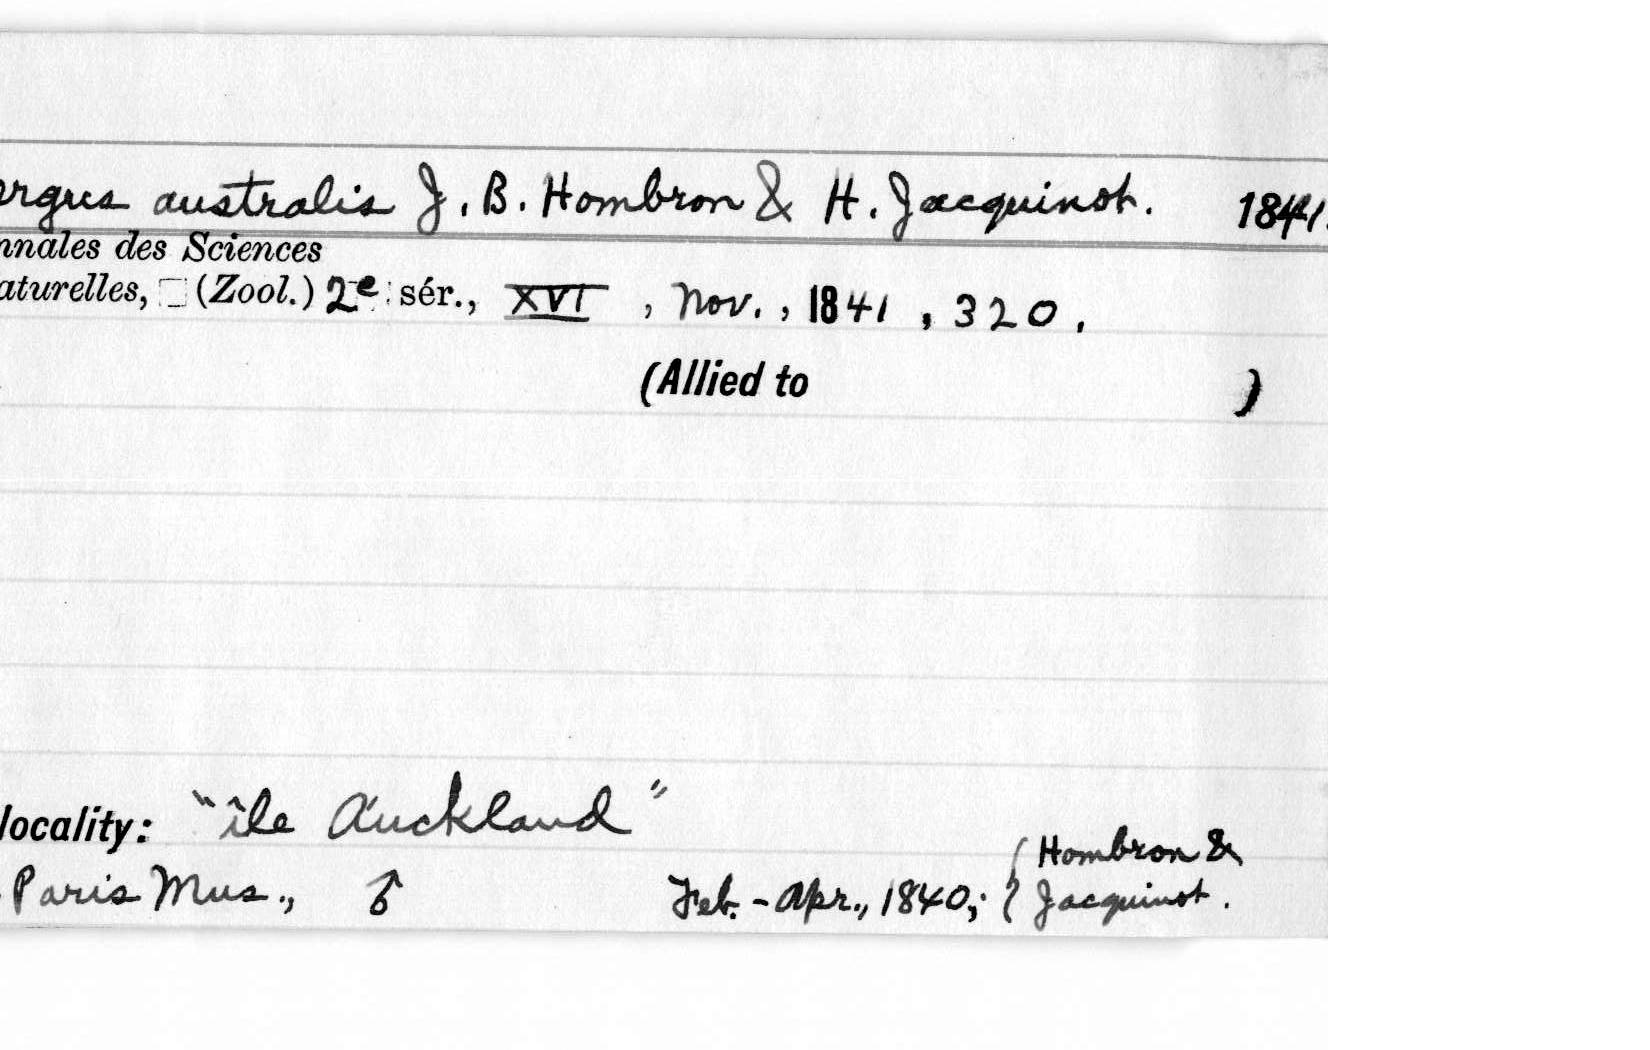 ergus australis J. B. Hombron & H. Jacquinot. 1841.
nnales des Sciences
aturelles, (Zool.) 2e sér., XVI, Nov., 1841, 320.
(Allied to )
locality: "île Auckland"
Hombron &
Paris Mus., ♂ Feb. - Apr., 1840; Jacquinot.